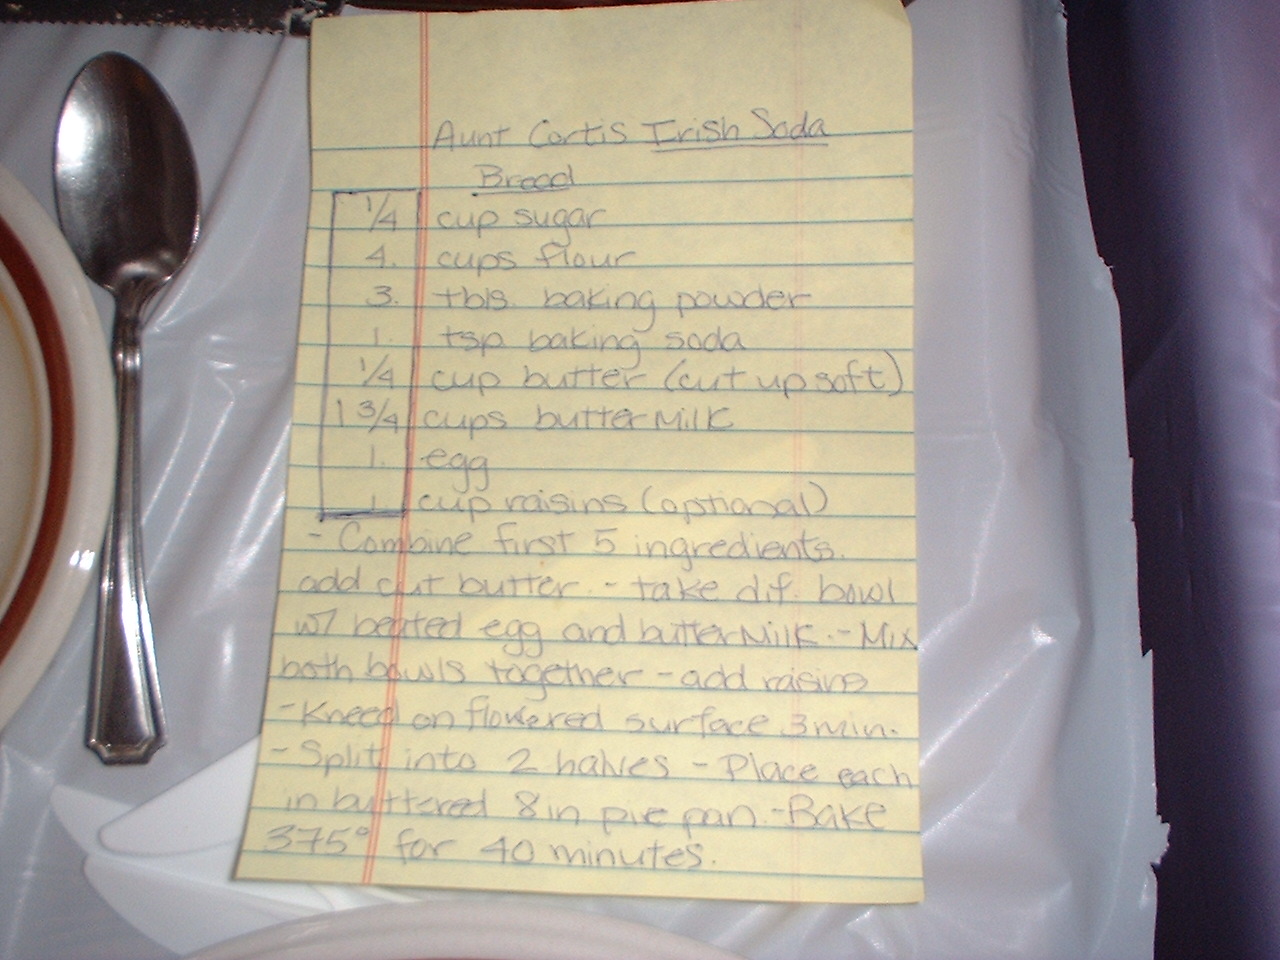 Aunt Cortis Irish Soda
Bread
1/4 cup sugar
4. cups flour
3. tbls. baking powder
1. tsp baking soda
1/4 cup butter (cut up soft)
1 3/4 cups butterMilk
1. egg
1 cup raisins (optional)
- Combine first 5 ingredients.
add cut butter. - take dif. bowl
w/ beated egg and butterMilk. - Mix
both bowls together - add raisins
- Kneed on flowered surface 3 min.
- Split into 2 halves - Place each
in buttered 8 in pie pan. - Bake
375° for 40 minutes.